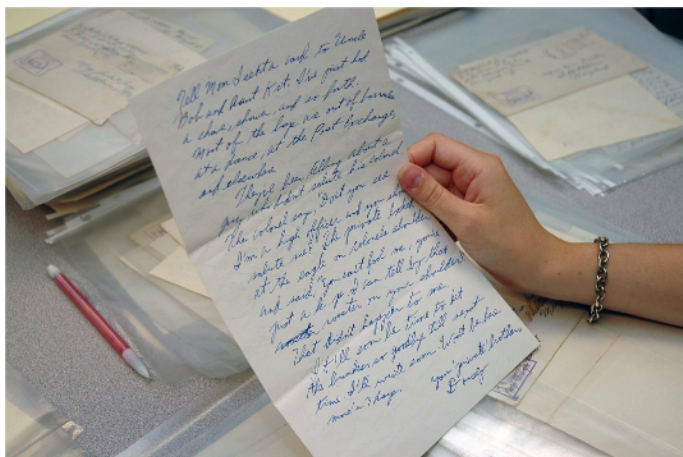 Tell Mom I sent a card to Uncle
Bob and Aunt Kit. I've just had
a shave, shower, and so forth.
Most of the boys are out of barracks
at a dance, at the Post Exchange,
and elsewhere.
They've been telling about a
guy who didn't salute his colonel
The colonel say, "Don't you see
I'm a high officer and you should
salute me? The private looked
at the eagle on colonels shoulder
and said, "you can't fool me, you're
just a k.p. I can tell by that
rooster on your shoulder!"
That didn't happen to me.
It'll soon be time to hit
the bunks so goodbye till next
time. I'll write soon. Won't be here
more'n 3 days.
your 'private' brother